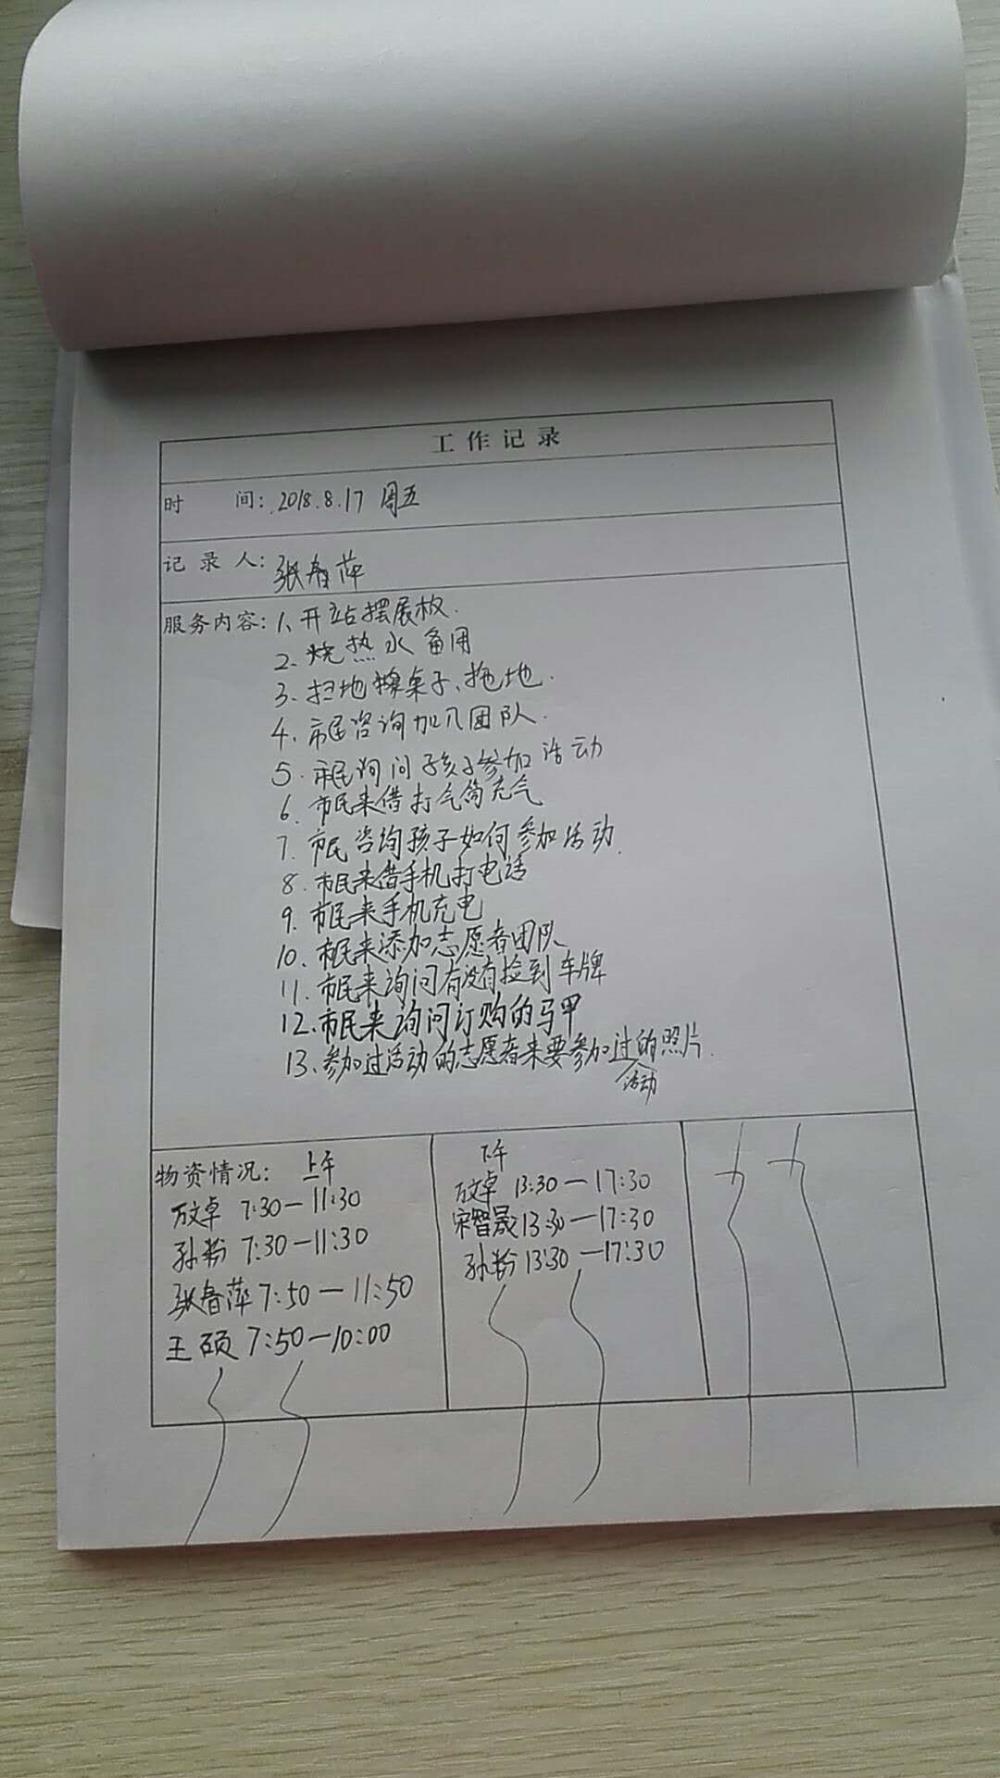 工作记录
时 间: 2018.8.17 周五
记录人: 张春萍
服务内容: 1、开站摆展板.
2. 烧热水备用
3. 扫地擦桌子、拖地.
4. 市民咨询加入团队.
5. 市民询问孩子参加活动
6. 市民来借打气筒充气
7. 市民咨询孩子如何参加活动.
8. 市民来借手机打电话
9. 市民来手机充电
10. 市民来添加志愿者团队
11. 市民来询问有没有捡到车牌
12. 市民来询问订购的马甲
13. 参加过活动的志愿者来要参加过的照片.
活动
物资情况: 上午
万文卓 7:30—11:30
孙粉 7:30—11:30
张春萍 7:50—11:50
王硕 7:50—10:00
下午
万文卓 13:30—17:30
宋智晟 13:30—17:30
孙粉 13:30—17:30